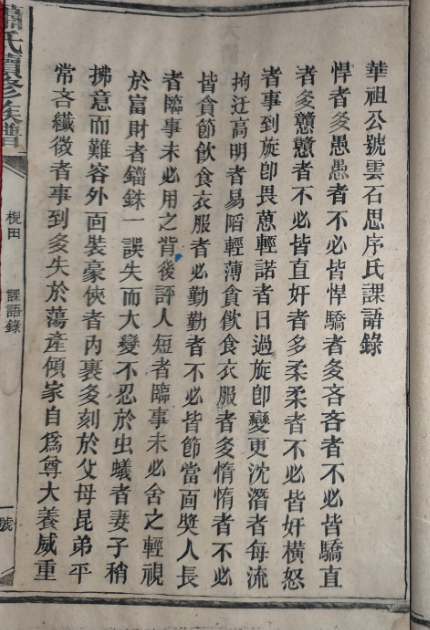 華祖公號雲石思序氏課語錄
悍者多愚愚者不必皆悍驕者多吝吝者不必皆驕直
者多戇戇者不必皆直奸者多柔柔者不必皆奸橫怒
者事到旋卽畏葸輕諾者日過旋卽變更沈潛者每流
拘迂高明者易陷輕薄貪飲食衣服者多惰惰者不必
皆貪節飲食衣服者必勤勤者不必皆節當面奬人長
者臨事未必用之背後評人短者臨事未必舍之輕視
於富財者錙銖一誤失而大變不忍於虫蟻者妻子稍
拂意而難容外面裝豪俠者內裏多刻於父母昆弟平
常吝纖微者事到多失於蕩產傾家自爲尊大養威重
氏續修族譜
梘田
課語錄
一號